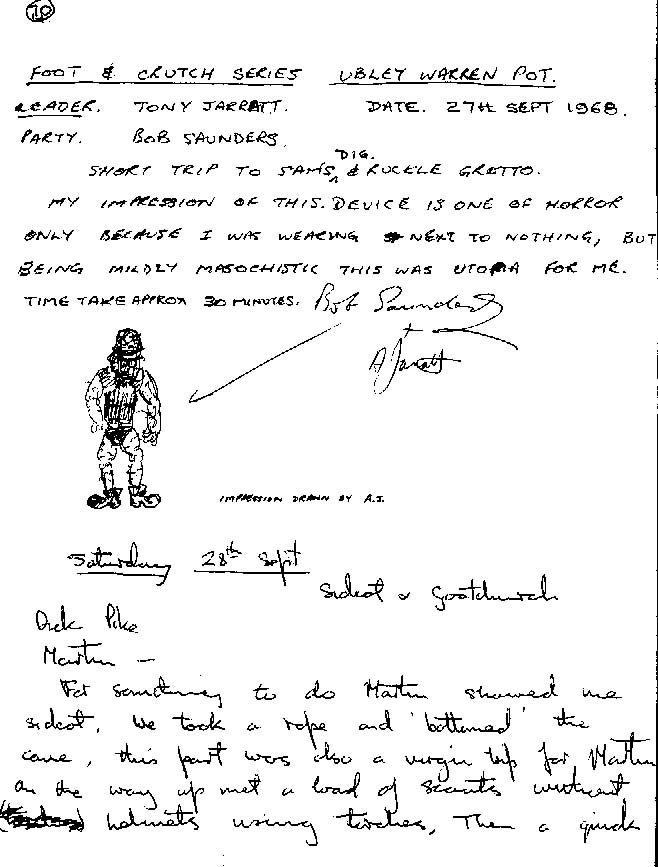 20
FOOT & CRUTCH SERIES UBLEY WARREN POT.
LEADER. TONY JARRATT. DATE. 27TH SEPT 1968.
PARTY. BOB SAUNDERS.
DIG.
SHORT TRIP TO SAM'S & RUCKLE GROTTO.
MY IMPRESSION OF THIS. DEVICE IS ONE OF HORROR
ONLY BECAUSE I WAS WEARING NEXT TO NOTHING, BUT
BEING MILDLY MASOCHISTIC THIS WAS UTOPIA FOR ME.
TIME TAKE APPROX 30 MINUTES. Bob Saunders
A Jarratt
IMPRESSION DRAWN BY A.J.
Saturday 28th Sept
Sidcot & Goatchurch
Dick Pike
Martin —
For something to do Martin showed me
sidcot. We took a rope and 'bottomed' the
cave, this part was also a virgin trip for Martin
on the way up met a load of scouts without
helmets using torches, Then a quick